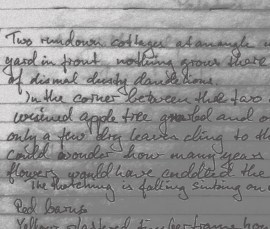 Two rundown cottages at an angle
yard in front nothing grows there
of dismal dusty dandelions.
In the corner between the two
apple tree gnarled and
only a few dry leaves cling to th
could wonder how many years
flowers would have endured the
The thatching is falling sinking
Red barns
Yellow plastered timberframe hou